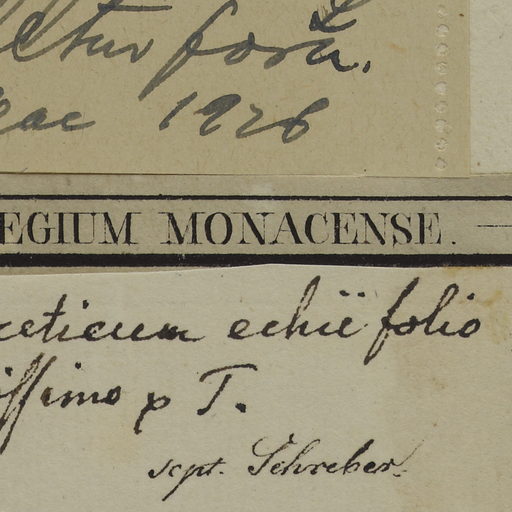 forū.
1926
EGIUM MONACENSE.
ceticum echii folio
issimo p T.
scpt. Schreber.